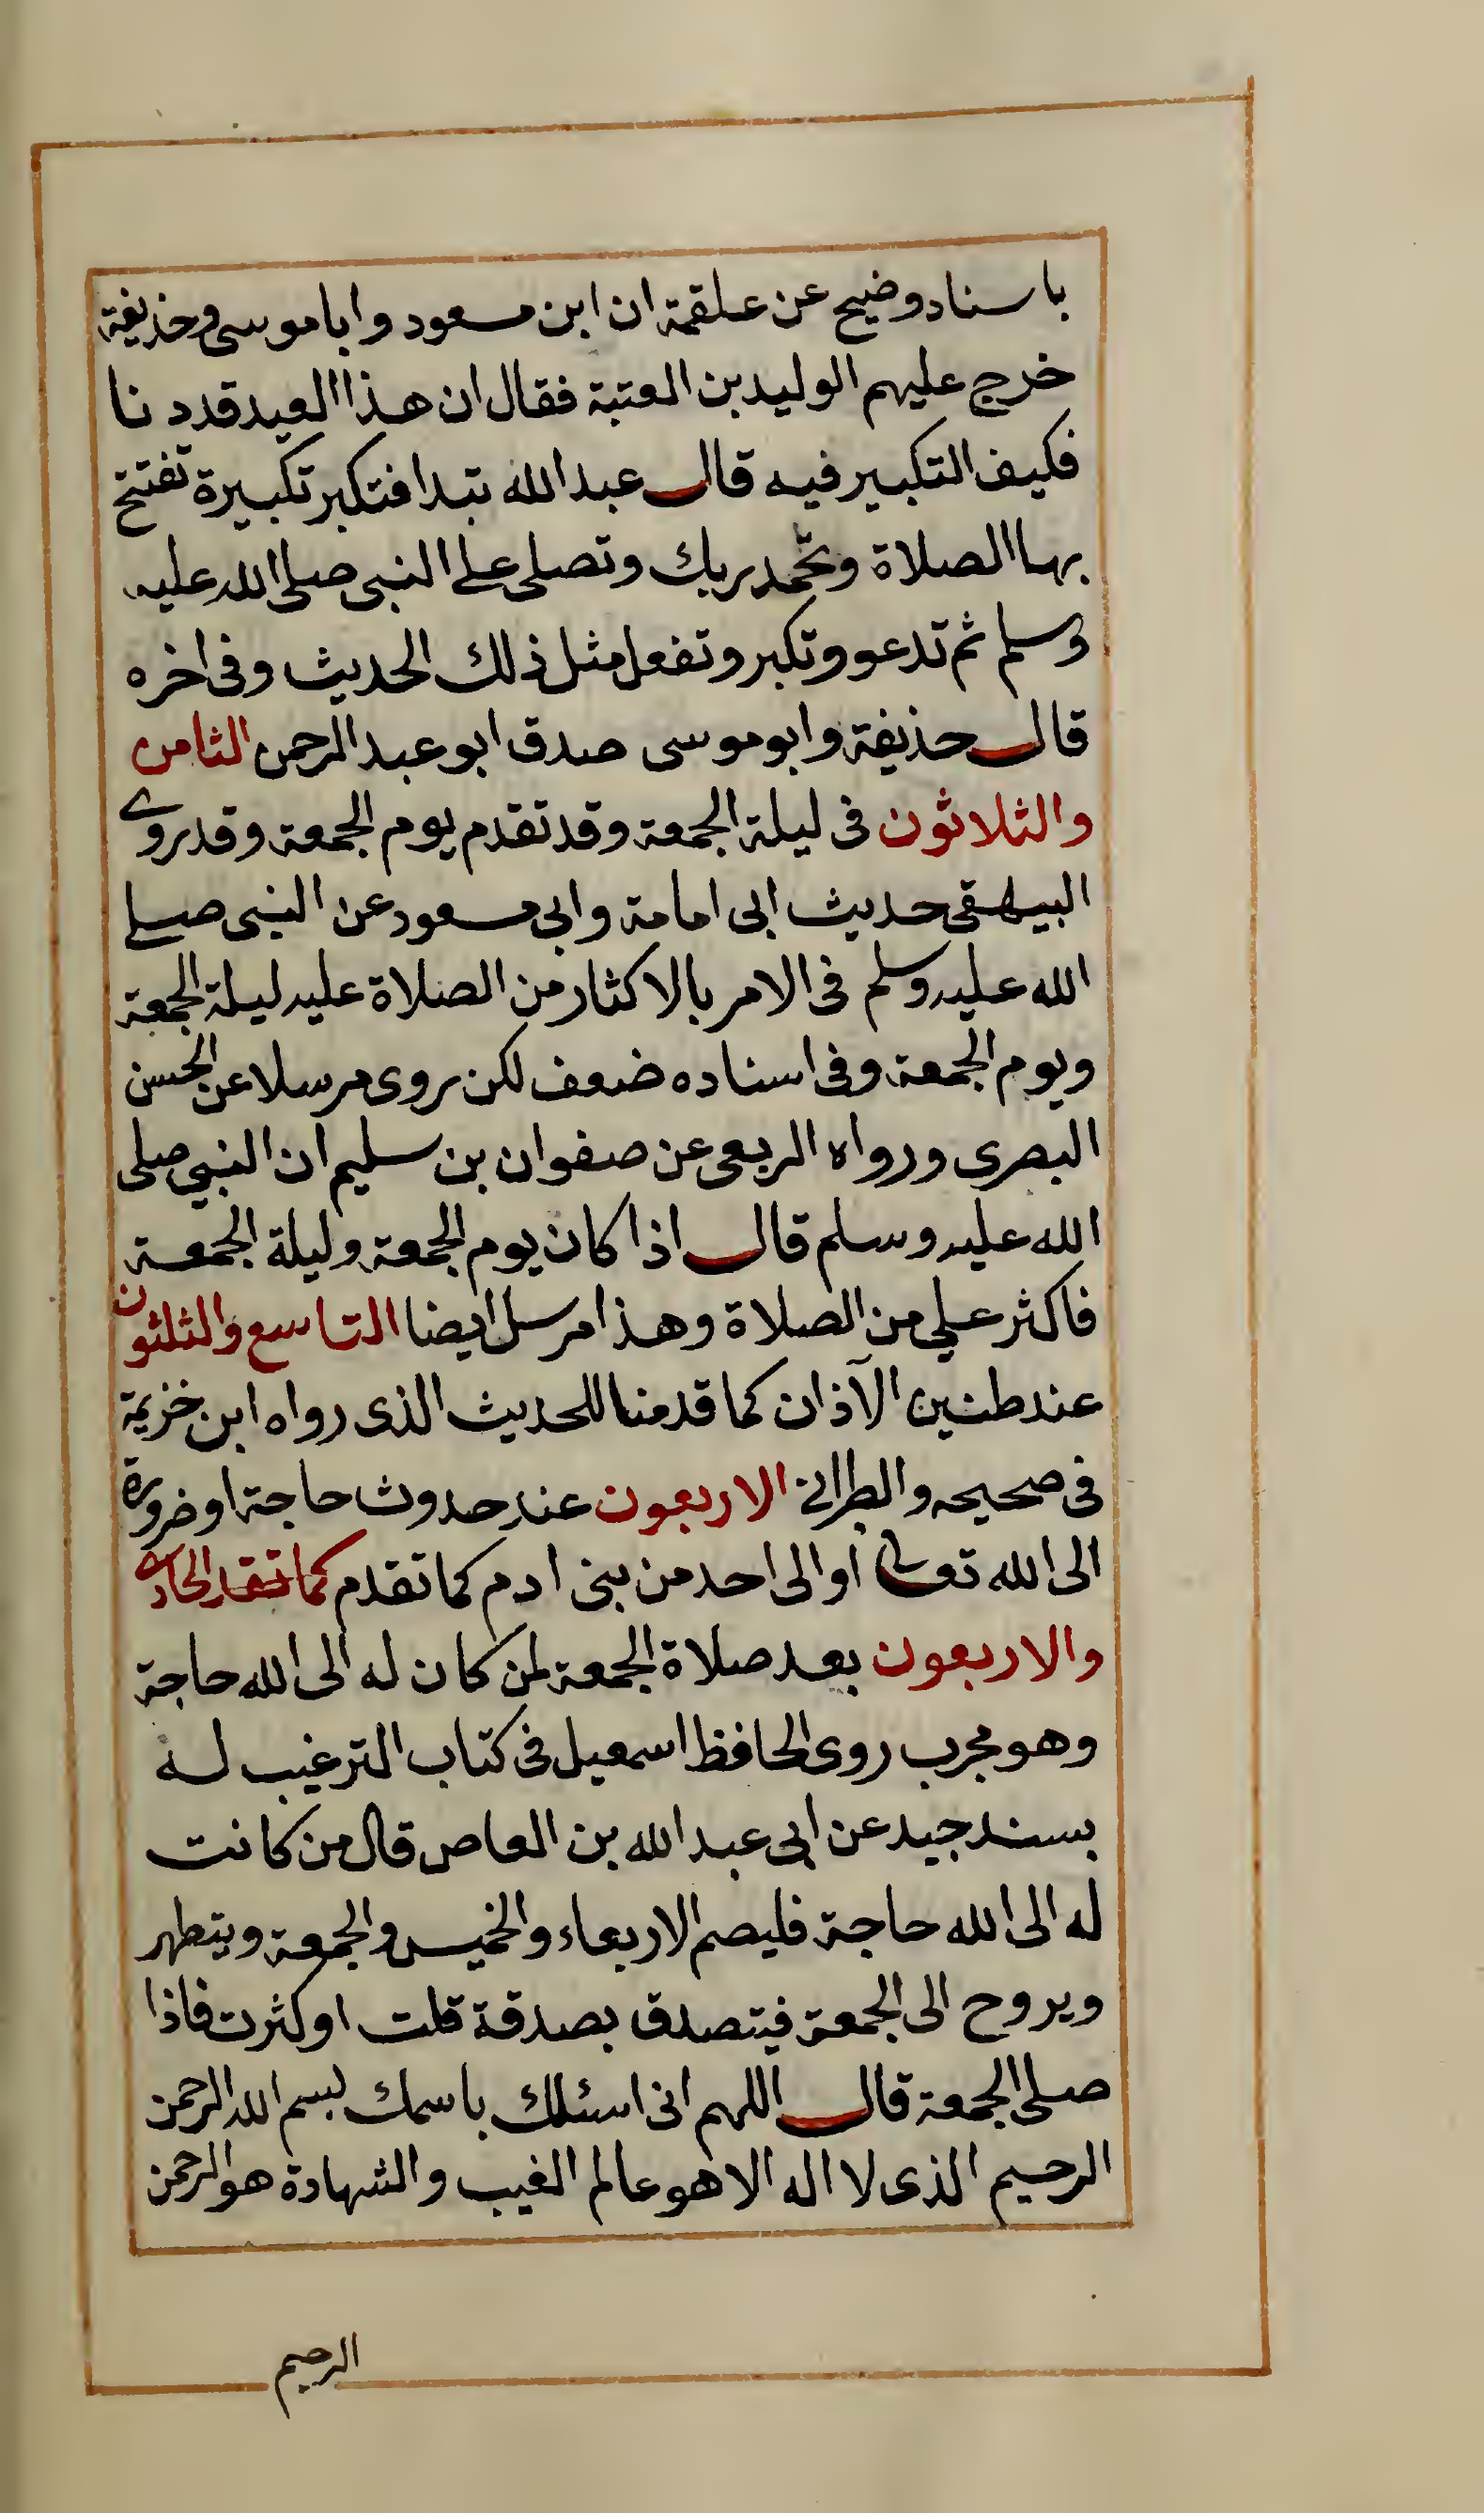 باسناد وضيح عن علقمة ان ابن مسعود وابا موسى وحذيفة
خرج عليهم الوليد بن العتبة فقال ان هذا العيد قد دنا
فكيف التكبير فيه قال عبد الله تبدا فتكبر تكبيرة تفتتح
بها الصلاة وتحمد ربك وتصلى على النبى صلى الله عليه
وسلم ثم تدعو وتكبر وتفعل مثل ذلك الحديث وفى اخره
قال حذيفة وابو موسى صدق ابو عبد الرحمن الثامن
والثلاثون فى ليلة الجمعة وقد تقدم يوم الجمعة وقد روى
البيهقى حديث ابى امامة وابى مسعود عن النبى صلى
الله عليه وسلم فى الامر بالاكثار من الصلاة عليه ليلة الجمعة
ويوم الجمعة وفى اسناده ضعف لكن روى مرسلا عن الحسن
البصرى ورواه الربعى عن صفوان بن سليم ان النبي صلى
الله عليه وسلم قال اذا كان يوم الجمعة وليلة الجمعة
فاكثر علي من الصلاة وهذا مرسل ايضا التاسع والثلثون
عند طنين الآذان كما قدمنا للحديث الذى رواه ابن خزيمة
فى صحيحه والطبرانى الاربعون عند حدوث حاجة او ضرورة
الى الله تعالى او الى احد من بنى ادم كما تقدم كما تقد الحادى
والاربعون بعد صلاة الجمعة لمن كان له الى الله حاجة
وهو مجرب روى الحافظ اسمعيل فى كتاب الترغيب له
بسند جيد عن ابى عبد الله بن العاص قال من كانت
له الى الله حاجة فليصم الاربعاء والخميس والجمعة ويتطهر
ويروح الى الجمعة فيتصدق بصدقة قلت او كثرت فاذا
صلى الجمعة قال اللهم انى اسئلك باسمك بسم الله الرحمن
الرحيم الذى لا اله الا هو عالم الغيب والشهادة هو الرحمن
الرحيم